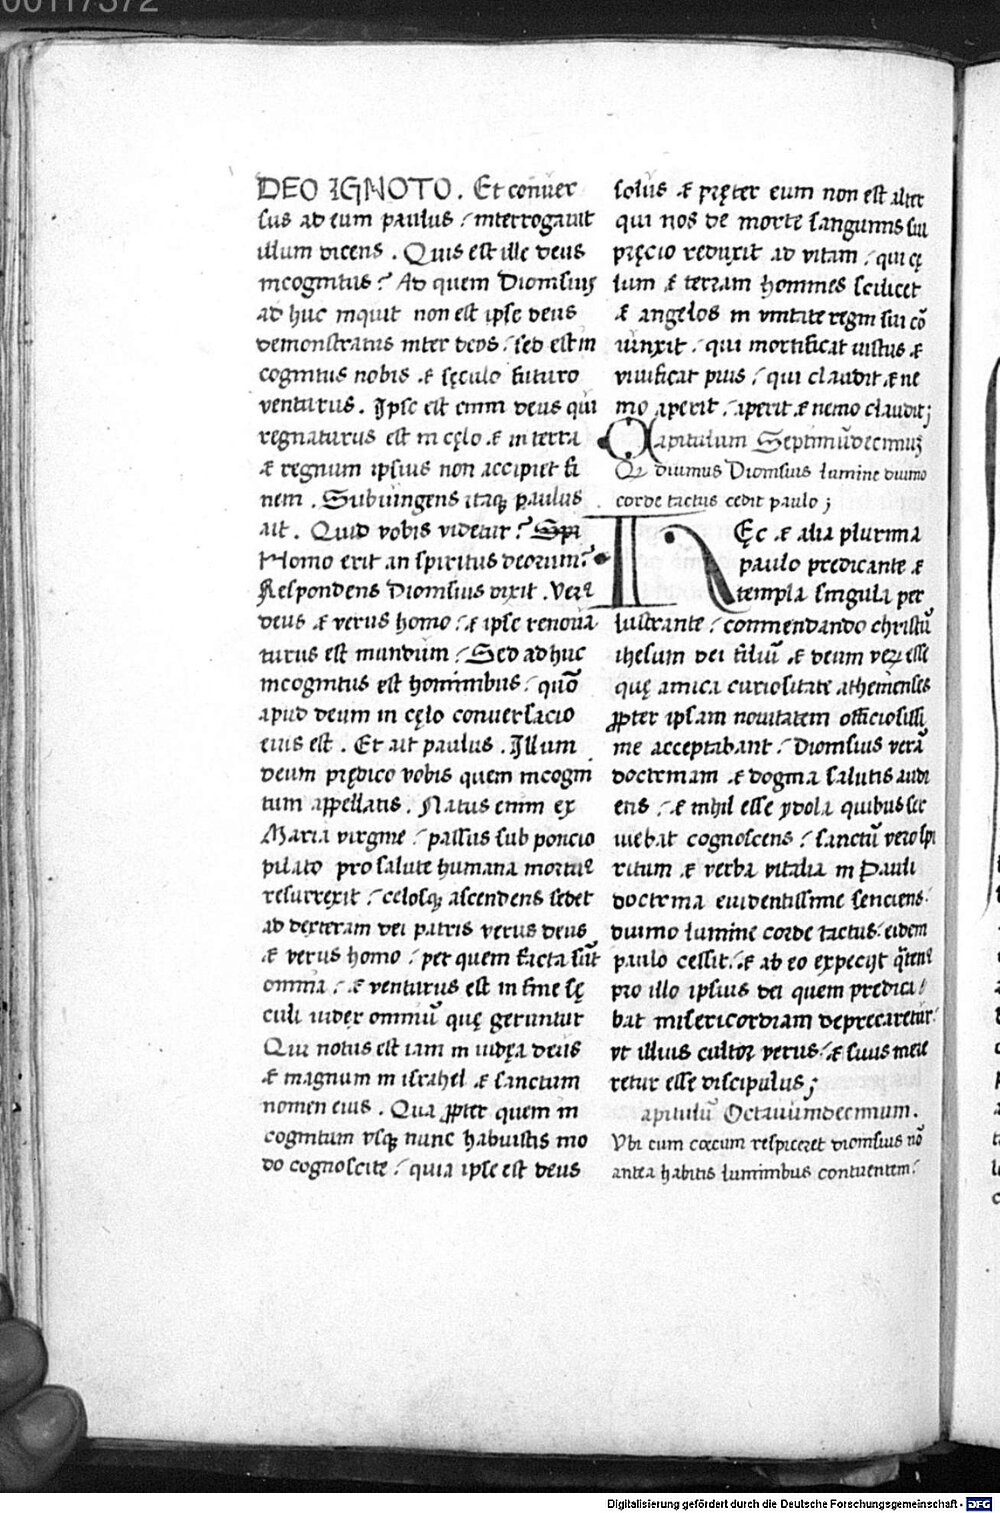 00117372
DEO IGNOTO. Et conuer
sus ad eum paulus / interrogauit
illum dicens. Quis est ille deus
incognitus? Ad quem Dionisius
ad huc inquit non est ipse deus
demonstratus inter deos / sed est in
cognitus nobis & sęculo futuro
venturus. Ipse est enim deus qui
regnaturus est in cęlo & in terra
& regnum ipsius non accipiet fi
nem. Subiungens itaqꝫ paulus
ait. Quid vobis videtur? Spi
Homo erit an spiritus deorum?
Respondens Dionisius dixit. Verꝰ
deus & verus homo / & ipse renoua
turus est mundum / Sed ad huc
incognitus est hominibus / quō
apud deum in cęlo conuersacio
eius est. Et ait paulus. Illum
deum prędico vobis quem incogni
tum appellatis. Natus enim ex
Maria virgine / passus sub poncio
pilato pro salute humana mortuꝰ
resurrexit / celosqꝫ ascendens sedet
ad dexteram dei patris verus deus
& verus homo / per quem facta sūt
omnia / & venturus est in fine sę
culi iudex omniū quę geruntur
Qui notus est iam in iudęa deus
& magnum in israhel & sanctum
nomen eius. Qua ꝓpter quem in
cognitum vsqꝫ nunc habuistis mo
do cognoscite / quia ipse est deus
solus & pręter eum non est alter
qui nos de morte sanguinis sui
pręcio reduxit ad vitam / qui cę
lum & terram homines scilicet
& angelos in vnitate regni sui cō
iunxit / qui mortificat iustus &
viuificat pius / qui claudit & ne
mo aperit / aperit & nemo claudit;
Capitulum Septimūdecimuꝫ
Qꝫ diuinus Dionisius lumine diuino
corde tactus cedit paulo;
HĘc & alia plurima
paulo predicante &
templa singula per
lustrante / commendando christū
ihesum dei filiū & deum veꝝ esse
quę amica curiositate athenienses
ꝓpter ipsam nouitatem officiosissi
me acceptabant / Dionisius verā
doctrinam & dogma salutis audi
ens / & nihil esse ydola quibus ser
uiebat cognoscens / sanctū vero spi
ritum & verba vitalia in Pauli
doctrina euidentissime senciens /
diuino lumine corde tactus / eidem
paulo cessit / & ab eo expecijt q̄tenꝰ
pro illo ipsius dei quem predica/
bat misericordiam deprecaretur /
vt illius cultor verus / & suus mere
retur esse discipulus;
apitulū Octauumdecimum.
Vbi cum cæcum respiceret dionisius nō
antea habitis luminibus contuentem /
Digitalisierung gefördert durch die Deutsche Forschungsgemeinschaft - DFG